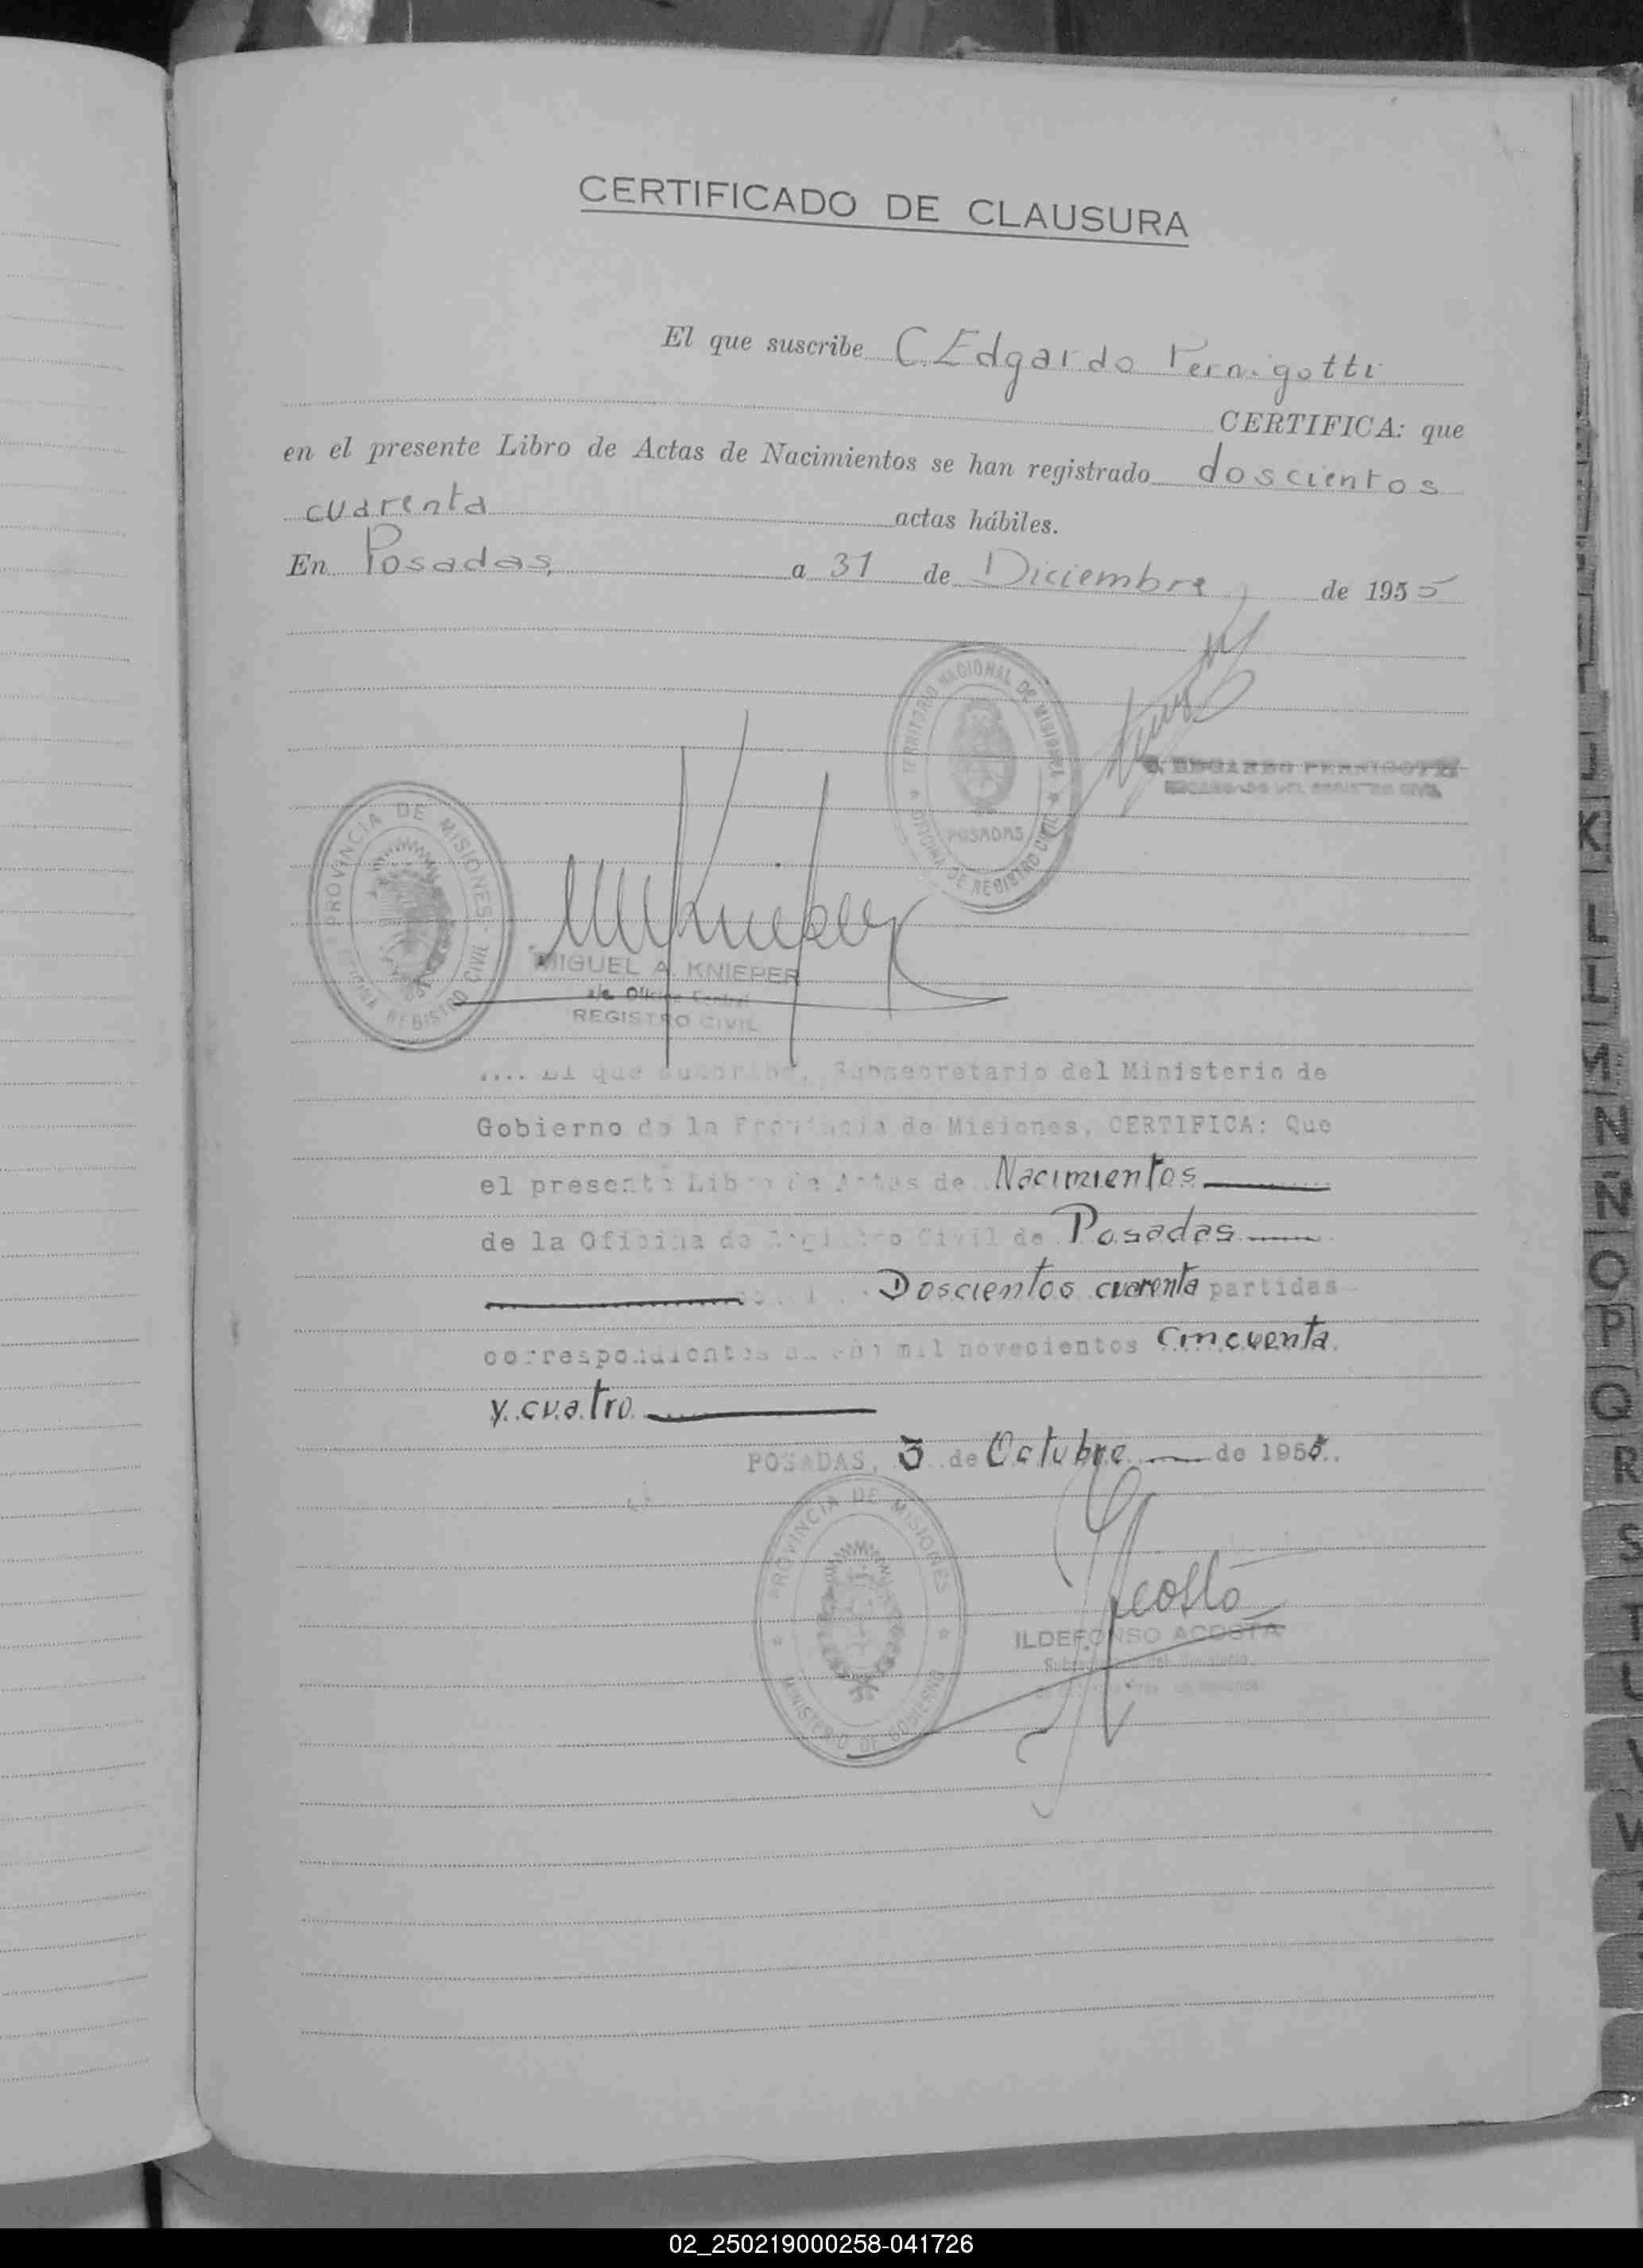 CERTIFICADO DE CLAUSURA
El que suscribe C. Edgardo Pernigotti
CERTIFICA: que
en el presente Libro de Actas de Nacimientos se han registrado doscientos
cuarenta actas hábiles.
En Posadas, a 31 de Diciembre de 1955
TERRITORIO NACIONAL DE MISIONES
POSADAS
OFICINA DE REGISTRO CIVIL
C. EDGARDO PERNIGOTTI
ENCARGADO DEL REGISTRO CIVIL
PROVINCIA DE MISIONES
OFICINA REGISTRO CIVIL
MIGUEL A. KNIEPER
a/c Oficina Central
REGISTRO CIVIL
.... El que suscribe, Subsecretario del Ministerio de
Gobierno de la Provincia de Misiones, CERTIFICA: Que
el presente Libro de Actas de Nacimientos
de la Oficina de Registro Civil de Posadas
Doscientos cuarenta partidas
correspondientes al año mil novecientos cincuenta
y cuatro
POSADAS, 3 de Octubre de 1955.
PROVINCIA DE MISIONES
MINISTERIO DE GOBIERNO
Acosta
ILDEFONSO ACOSTA
K
L
LL
M
N
Ñ
O
P
Q
R
S
T
U
V
W
02_250219000258-041726